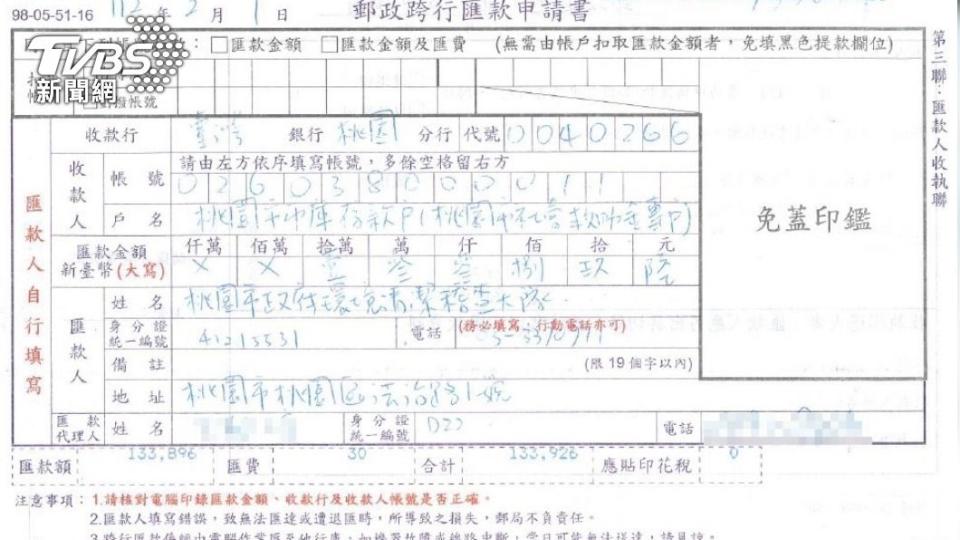 98-05-51-16 112 年 2 月 1 日 郵政跨行匯款申請書
TVBS
新聞網
□匯款金額 □匯款金額及匯費 (無需由帳戶扣取匯款金額者，免填黑色提款欄位)
第三聯：匯款人收執聯
劃撥帳號
收款行 臺灣 銀行 桃園 分行 代號 0040266
請由左方依序填寫帳號，多餘空格留右方
收款人 帳號 026038000011
戶名 桃園市市庫存款戶(桃園市社會救助金專戶)
免蓋印鑑
匯款人自行填寫
匯款金額 新臺幣(大寫) 仟萬 佰萬 拾萬 萬 仟 佰 拾 元
× × 壹 叁 叁 捌 玖 陸
匯款人 姓名 桃園市政府環境清潔稽查大隊
身分證統一編號 41213531 電話 (務必填寫，行動電話亦可)
備註 (限19個字以內)
地址 桃園市桃園區法治路1號
匯款代理人 姓名 身分證統一編號 D22 電話
匯款額 133,896 匯費 30 合計 133,926 應貼印花稅 0
注意事項：1.請核對電腦印錄匯款金額、收款行及收款人帳號是否正確。
2.匯款人填寫錯誤，致無法匯達或遭退匯時，所導致之損失，郵局不負責任。